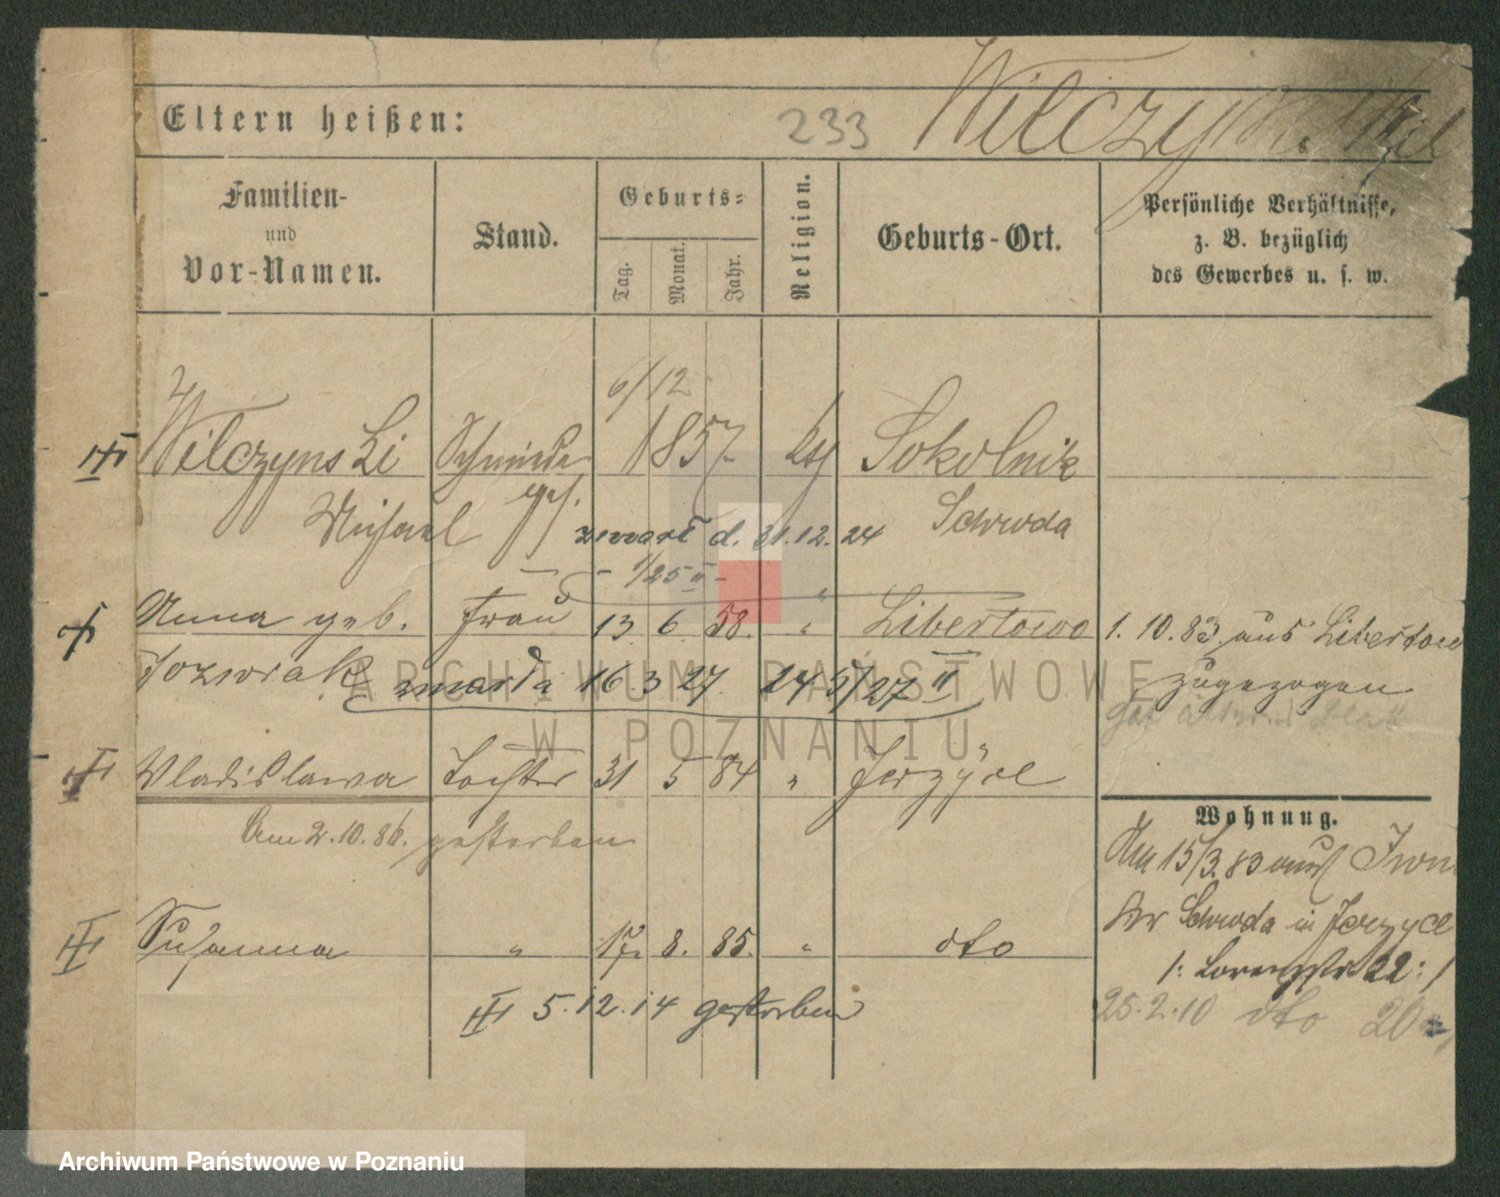 Eltern heißen:
233
Wilczynski
Familien-
und
Vor-Namen.
Stand.
Geburts-
Tag.
Monat.
Jahr.
Religion.
Geburts-Ort.
Persönliche Verhältnisse,
z. B. bezüglich
des Gewerbes u. s. w.
6/12
Wilczynski Schmiede 1857 Sokolnik
Michael ges. Schroda
zmarł d. 31.12.24
1/25 II
Anna geb. Frau 13 6 58. " Libertowo 1. 10. 83 aus Libertow
Jozwiak zugezogen
zmarła 16.3 27 24 5/27 II
Wladislawa Tochter 31 5 84 " Jerzyce
Am 2.10.86. gestorben
Wohnung.
Am 15/3.83 aus
Kr Schroda in Jerzyce
Susanna " 17. 8. 85. " dto
/: Lorenzstr 22 :/
5.12.14 gestorben
25.2.10 dto 20
ARCHIWUM PAŃSTWOWE
W POZNANIU
Archiwum Państwowe w Poznaniu